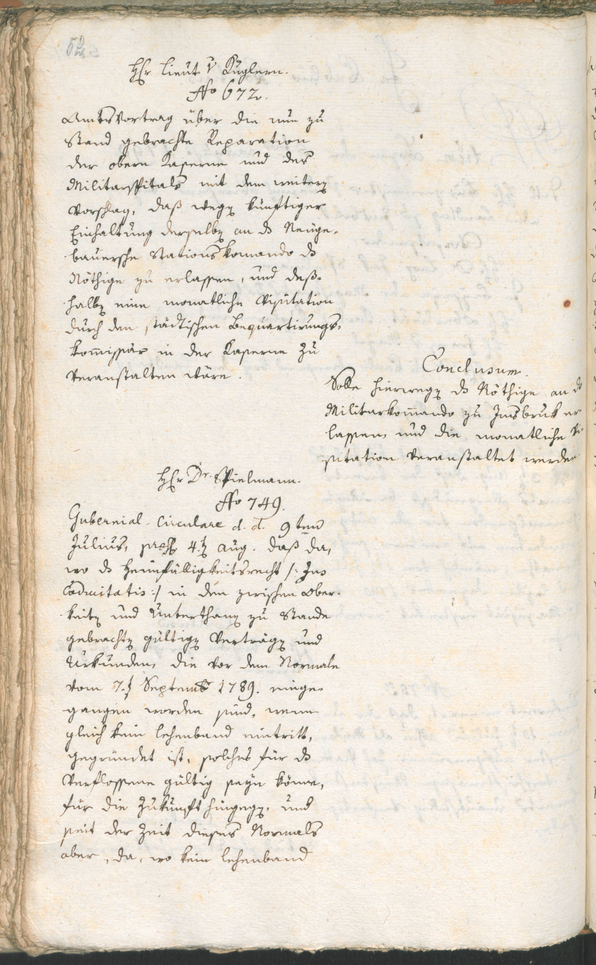 Hr Lieut v Kuglern.
No 672.
Amtsvortrag über die nun zu
Stand gebrachte Reparation
der obern Kaserne und des
Militarspitals mit dem weitern
Vorschlag, daß wegen künftiger
Einhaltung derselben an das Neuge-
bauersche Stationskomando das
Nöthige zu erlassen, und deß-
halben eine monatliche Visitation
durch den städtischen Bequartirungs-
kommissär in der Kaserne zu
veranstalten wäre.
Conclusum.
Solle hierwegen das Nöthige an das
Militarkommando zu Insbruk er
lassen, und die monatliche Vi
sitation veranstaltet werden
Hr Dr Spielmann.
No 749.
Gubernial-Circulare d. d. 9ten
Julius, 4. Aug. daß da,
wo das Heimfälligkeitsrecht /: Jus
Caducitatis :/ in den zwischen Ober-
keiten und Unterthanen zu Stande
gebrachten gültigen Verträgen und
Urkunden, die vor dem Normale
vom 7. Septemb 1789. einge-
gangen worden sind, wenn
gleich kein Lehenband eintritt,
gegründet ist, solches für das
Verflossene gültig seyn könne,
für die Zukunft hingegen, und
seit der Zeit dieses Normals
aber, da, wo kein Lehenband